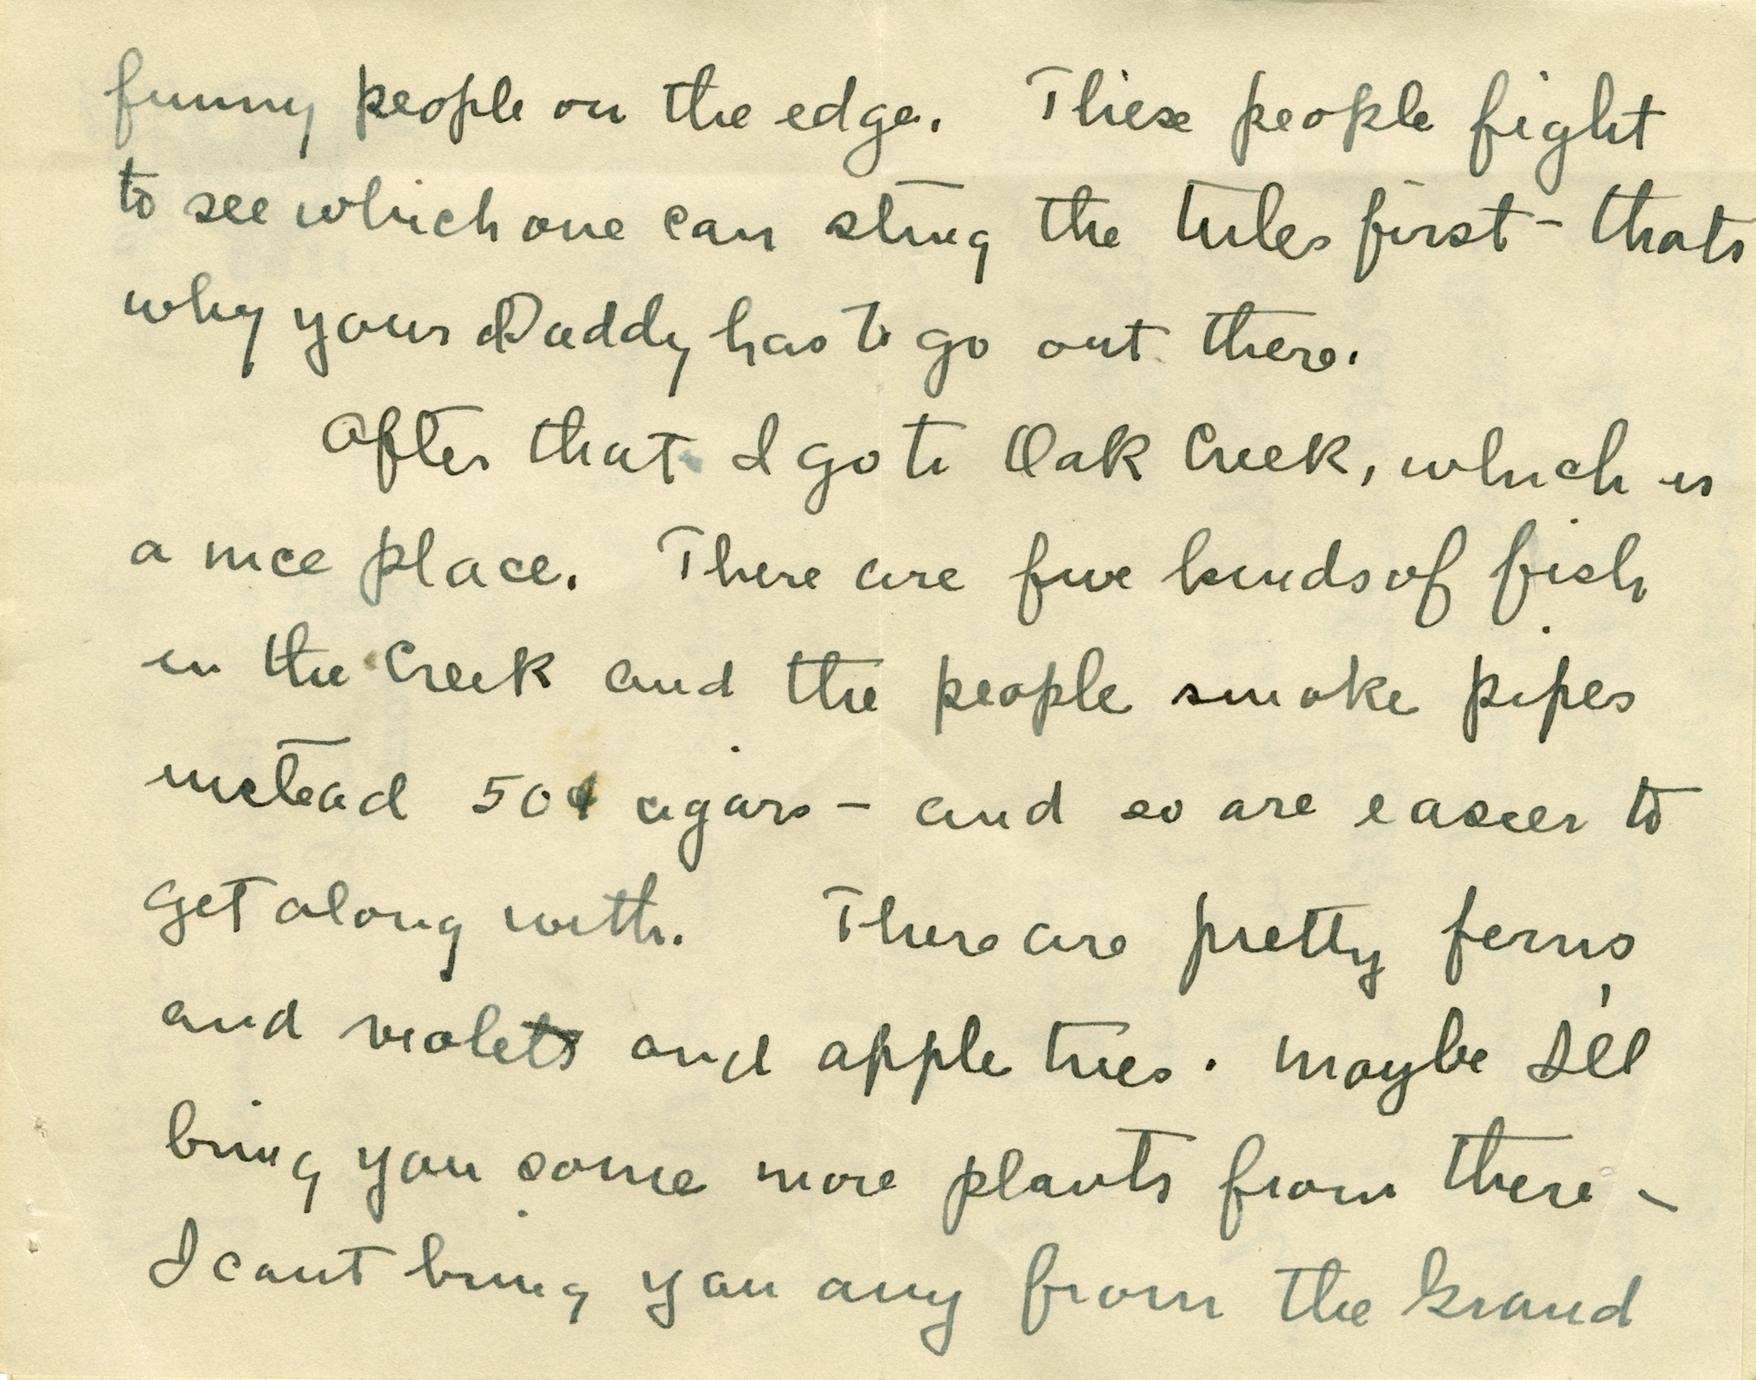 funny people on the edge. These people fight
to see which one can sting the tules first - thats
why your Daddy has to go out there.
After that I go to Oak Creek, which is
a nice place. There are five kinds of fish
in the Creek and the people smoke pipes
instead 50¢ cigars - and so are easier to
get along with. There are pretty ferns
and violets and apple trees. Maybe I'll
bring you some more plants from there -
I cant bring you any from the Grand